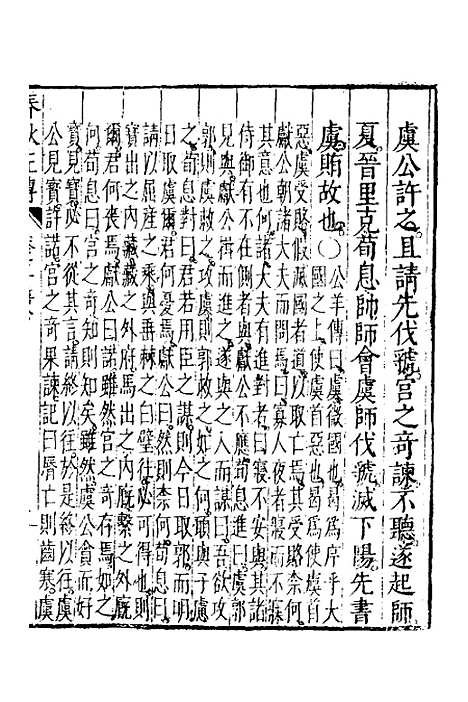 虞公許之且請先伐虢宮之奇諫不聽遂起師
夏晉里克荀息帥師會虞師伐虢滅下陽先書
虞賄故也〇公羊傳曰虞微國也曷為序乎大
國之上使虞首惡也曷為使虞首
惡虞受賂假滅國者道以取亡焉其受賂奈何
獻公朝諸大夫而問焉曰寡人夜者寢而不寐
其意也何諸大夫有進對者曰寢不安與其諸
侍御有不在側者與獻公不應荀息進曰虞郭
見與獻公揖而進之遂與之入而謀曰吾欲攻
郭則虞救之攻虞則郭救之如之何願與子慮
之荀息對曰君若用臣之謀則今日取郭而明
日取虞爾君何憂焉獻公曰然則奈何荀息曰
請以屈產之乘與垂棘之白璧往必可得也則
寶出之內藏藏之外府馬出之內廐繫之外廐
爾君何喪焉獻公曰諾雖然宮之奇存焉如之
何荀息曰宮之奇知則知矣雖然虞公貪而好
寶見寶必不從其言請以往於是終以往虞
公見寶許諾宮之奇果諫記曰脣亡則齒寒虞
春秋正傳